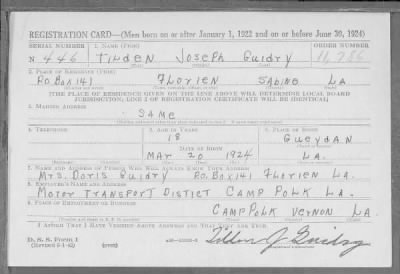 REGISTRATION CARD—(Men born on or after January 1, 1922 and on or before June 30, 1924)
SERIAL NUMBER 1. NAME (Print) ORDER NUMBER
N 446 TILDEN JOSEPH GUIDRY 11,786
2. PLACE OF RESIDENCE (Print)
P.O. BOX 141 FLORIEN SABINE LA
[THE PLACE OF RESIDENCE GIVEN ON THE LINE ABOVE WILL DETERMINE LOCAL BOARD
JURISDICTION; LINE 2 OF REGISTRATION CERTIFICATE WILL BE IDENTICAL]
3. MAILING ADDRESS
SAME
4. TELEPHONE 5. AGE IN YEARS 6. PLACE OF BIRTH
18 GUEYDAN
DATE OF BIRTH
MAR 20 1924 LA.
7. NAME AND ADDRESS OF PERSON WHO WILL ALWAYS KNOW YOUR ADDRESS
MRS. DORIS GUIDRY P.O. BOX 141 FLORIEN LA
8. EMPLOYER'S NAME AND ADDRESS
MOTOR TRANSPORT DISTICT CAMP POLK LA.
9. PLACE OF EMPLOYMENT OR BUSINESS
CAMP POLK VERNON LA.
I AFFIRM THAT I HAVE VERIFIED ABOVE ANSWERS AND THAT THEY ARE TRUE.
D. S. S. Form 1
(Revised 6-1-42) (over) Tilden J Guidry